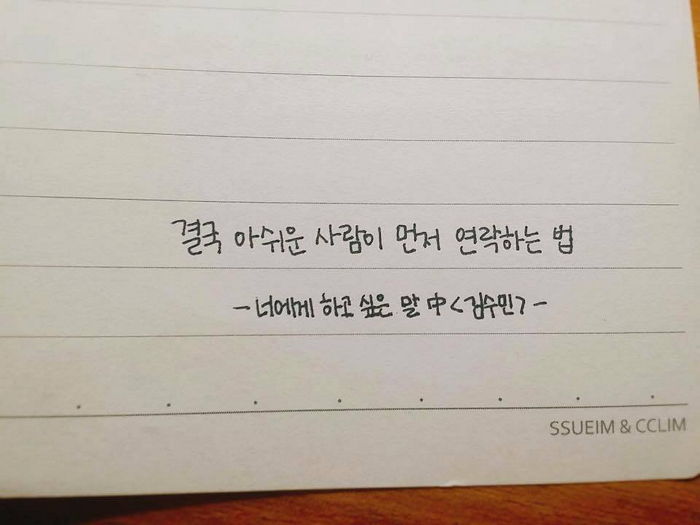 결국 아쉬운 사람이 먼저 연락하는 법
- 너에게 하고 싶은 말 中 <김수민> -
SSUEIM & CCLIM